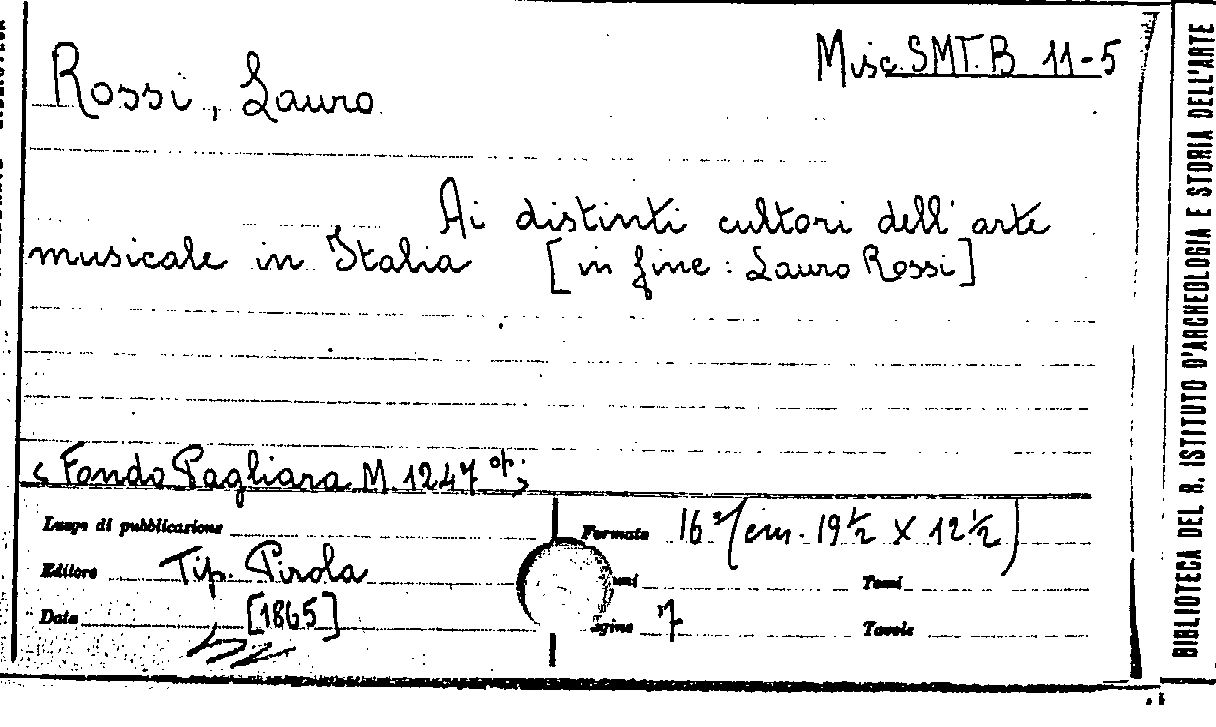 Misc. SMT. B 11-5
Rossi, Lauro
Ai distinti cultori dell'arte
musicale in Italia [in fine: Lauro Rossi]
< Fondo Pagliara M. 1247 op>
Luogo di pubblicazione
Formato 16° (cm. 19 ½ X 12 ½)
Editore Tip. Pirola
umi
Tomi
Data [1865]
agine 7
Tavole
BIBLIOTECA DEL R. ISTITUTO D'ARCHEOLOGIA E STORIA DELL'ARTE